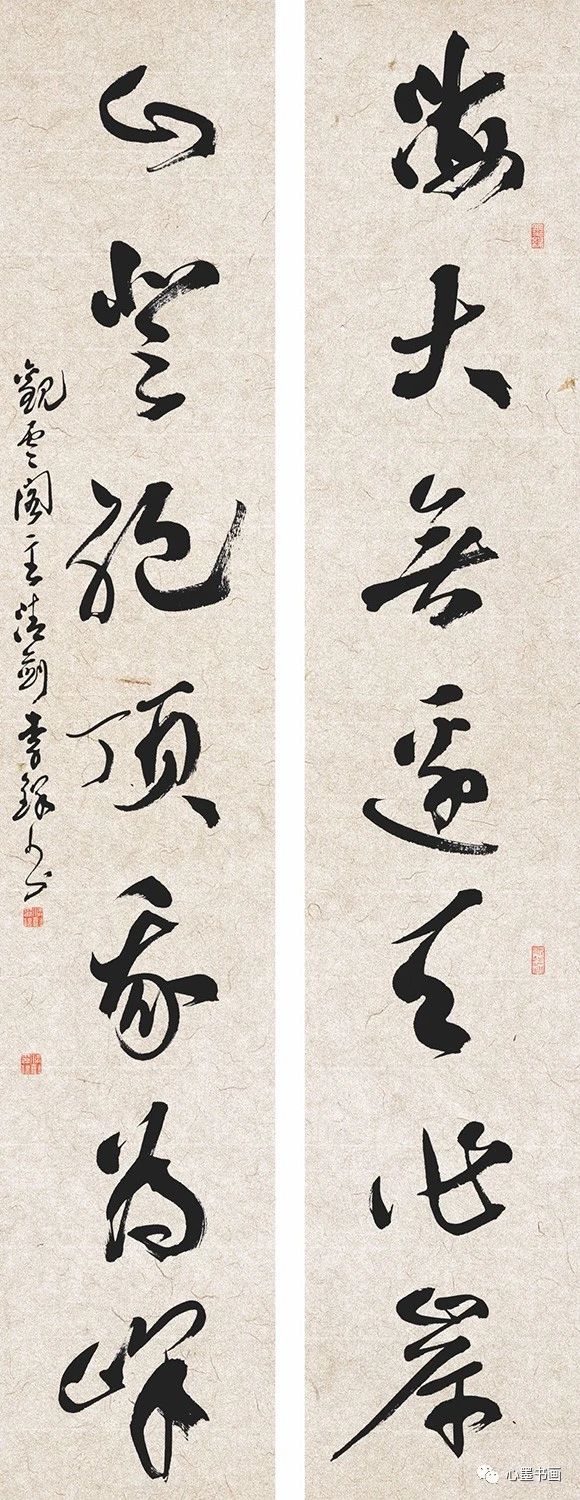 海大無邊天作岸
山登絕頂我為峰
觀雲閣主清劍李鋒書
心墨书画